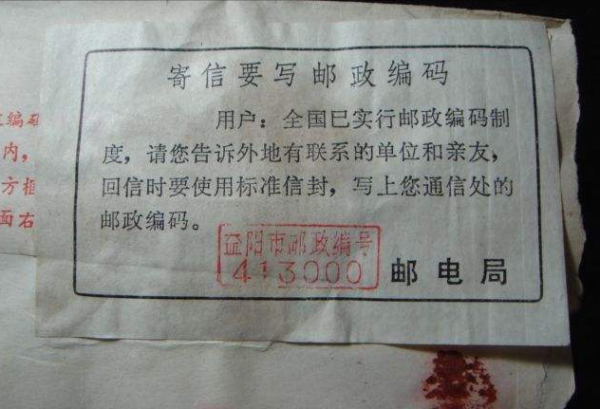 寄信要写邮政编码
用户：全国已实行邮政编码制
度，请您告诉外地有联系的单位和亲友，
回信时要使用标准信封，写上您通信处的
邮政编码。
益阳市邮政编号
413000
邮电局
编
内，
方框
面右